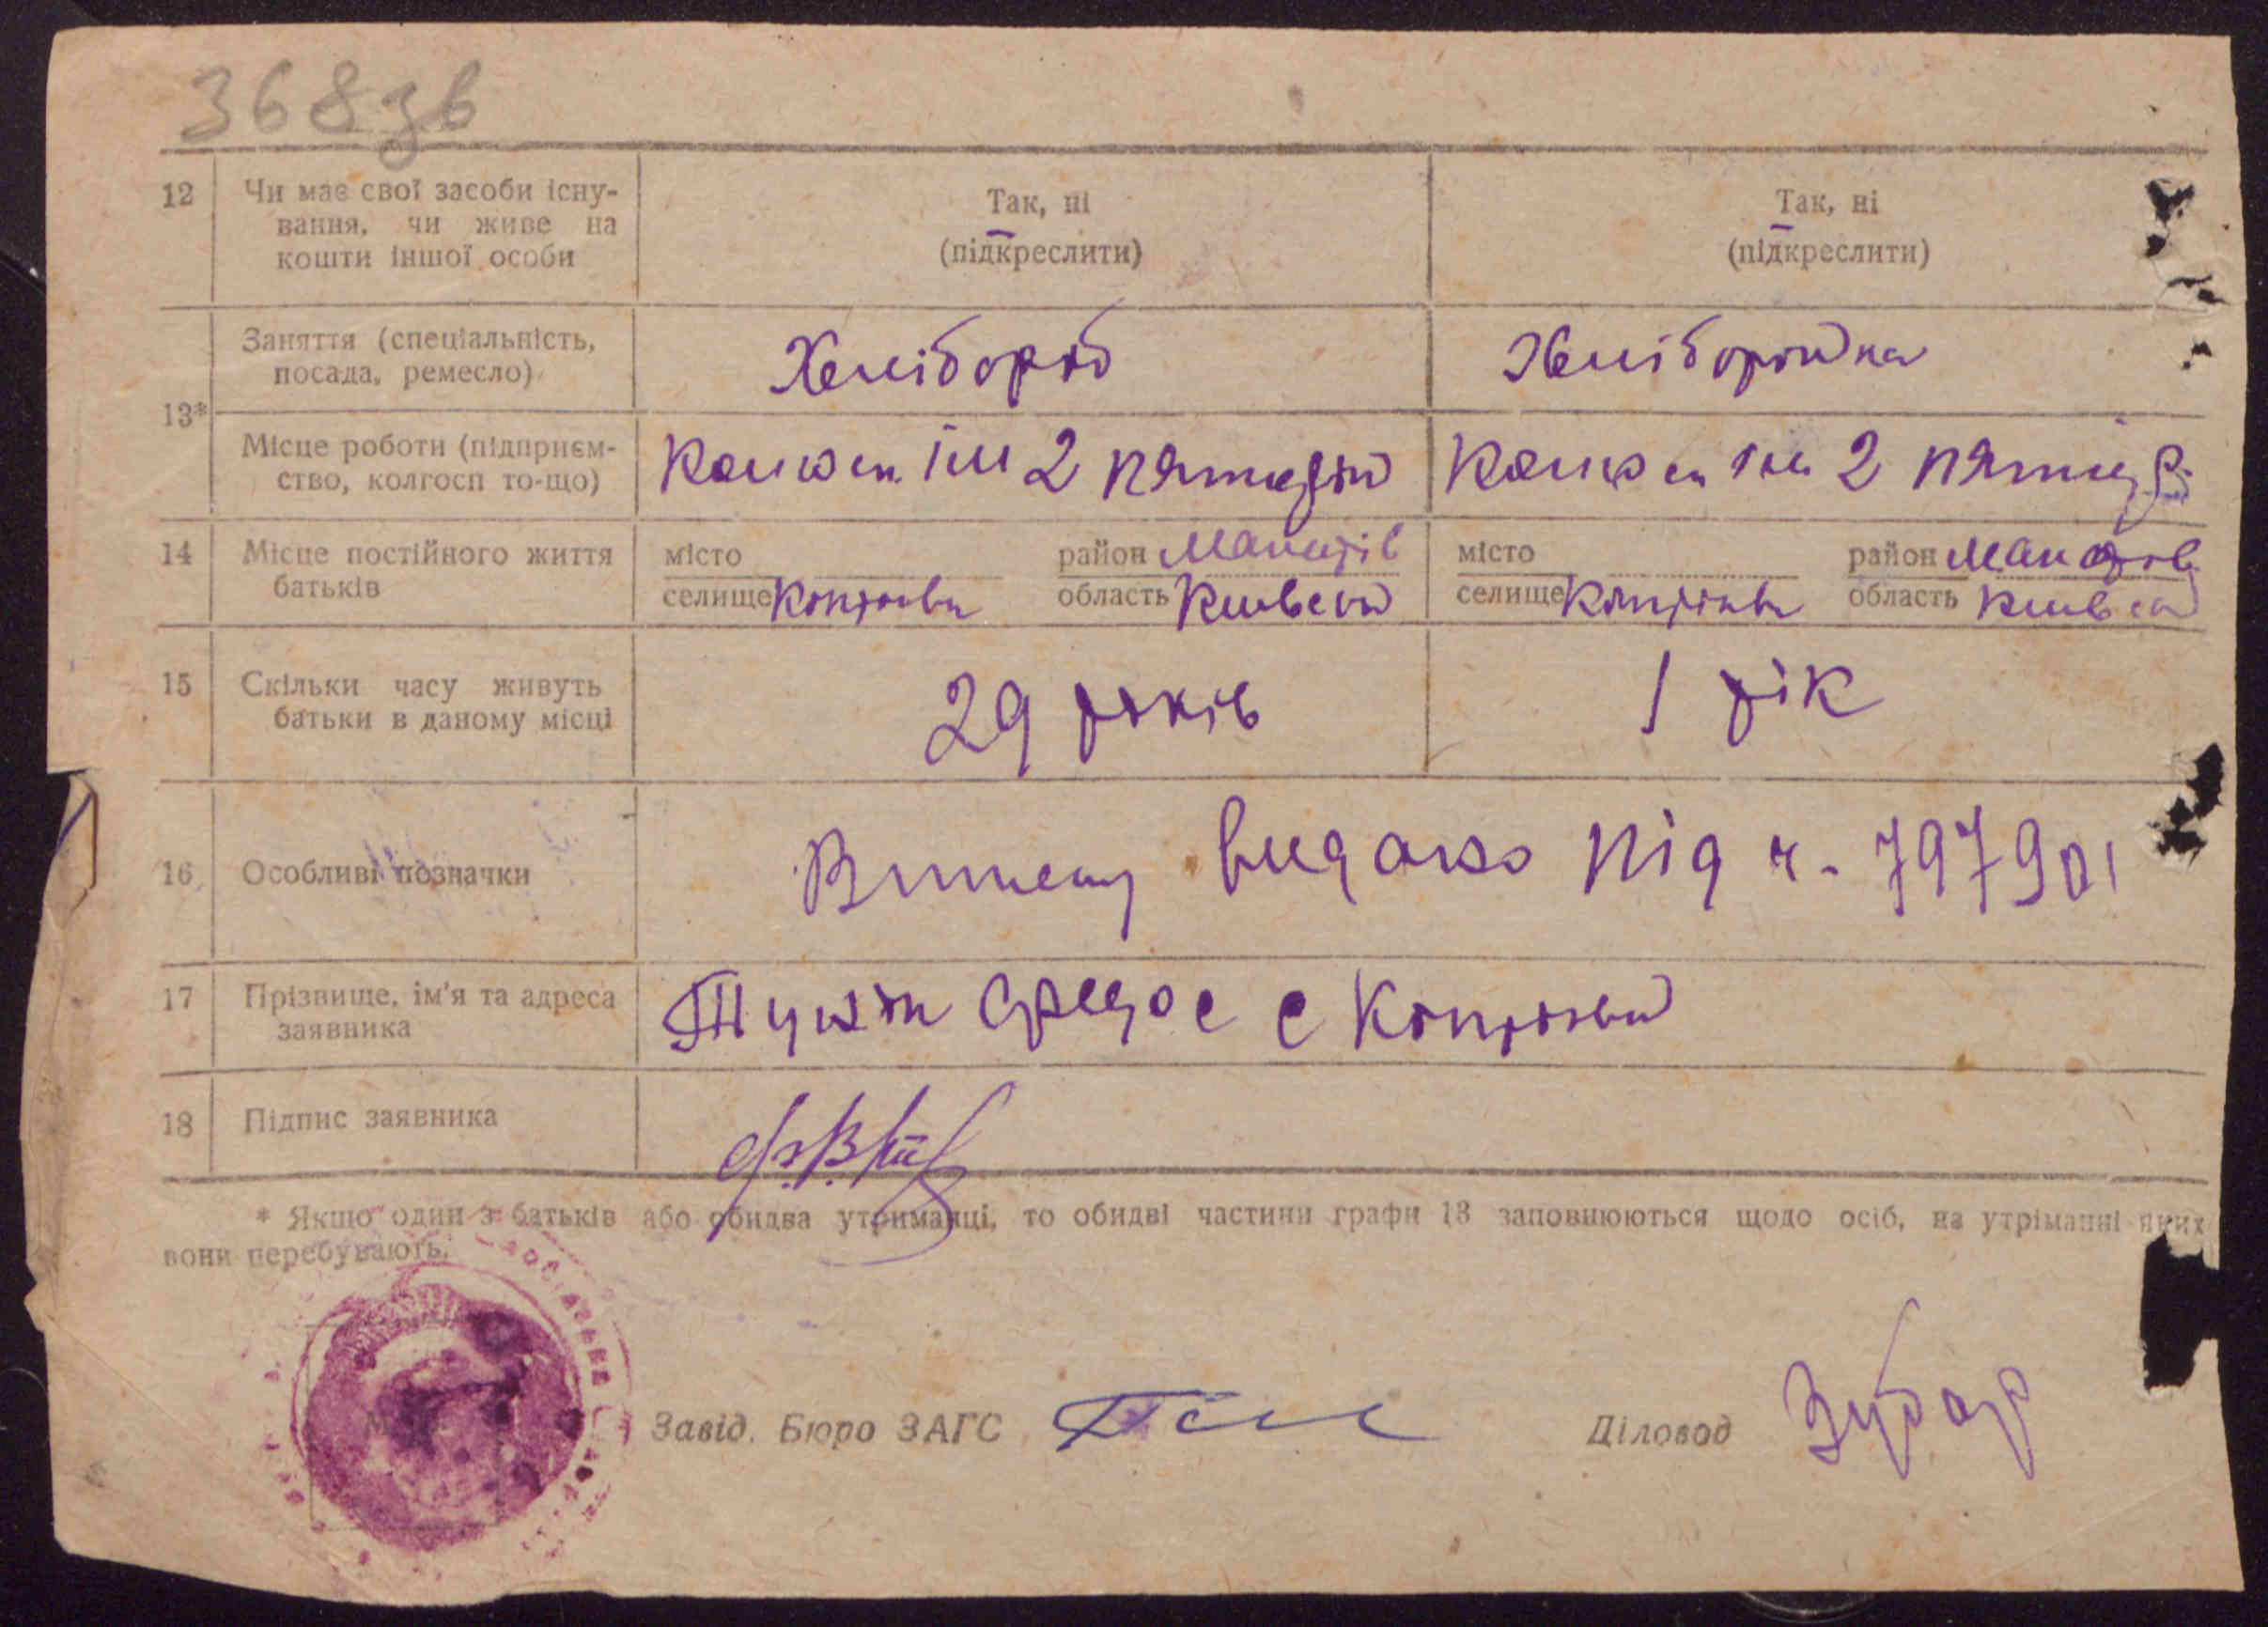 368 зв
12 Чи має свої засоби існу- Так, ні Так, ні
вання, чи живе на (підкреслити) (підкреслити)
кошти іншої особи
13* Заняття (спеціальність, Хлібороб Хліборобка
посада, ремесло)
Місце роботи (підприєм- Колгосп ім 2 пятиріч Колгосп ім 2 пятир
ство, колгосп то-що)
14 Місце постійного життя місто район Макарів місто район Макарів
батьків селище область Київська селище область Київська
15 Скільки часу живуть 29 років 1 рік
батьки в даному місці
16 Особливі позначки Виписку видано під ч. 797901
17 Прізвище, ім'я та адреса с
заявника
18 Підпис заявника
* Якщо один з батьків або обидва утриманці, то обидві частини графи 13 заповнюються щодо осіб, на утріманні яких
вони перебувають.
Завід. Бюро ЗАГС Діловод Зубар